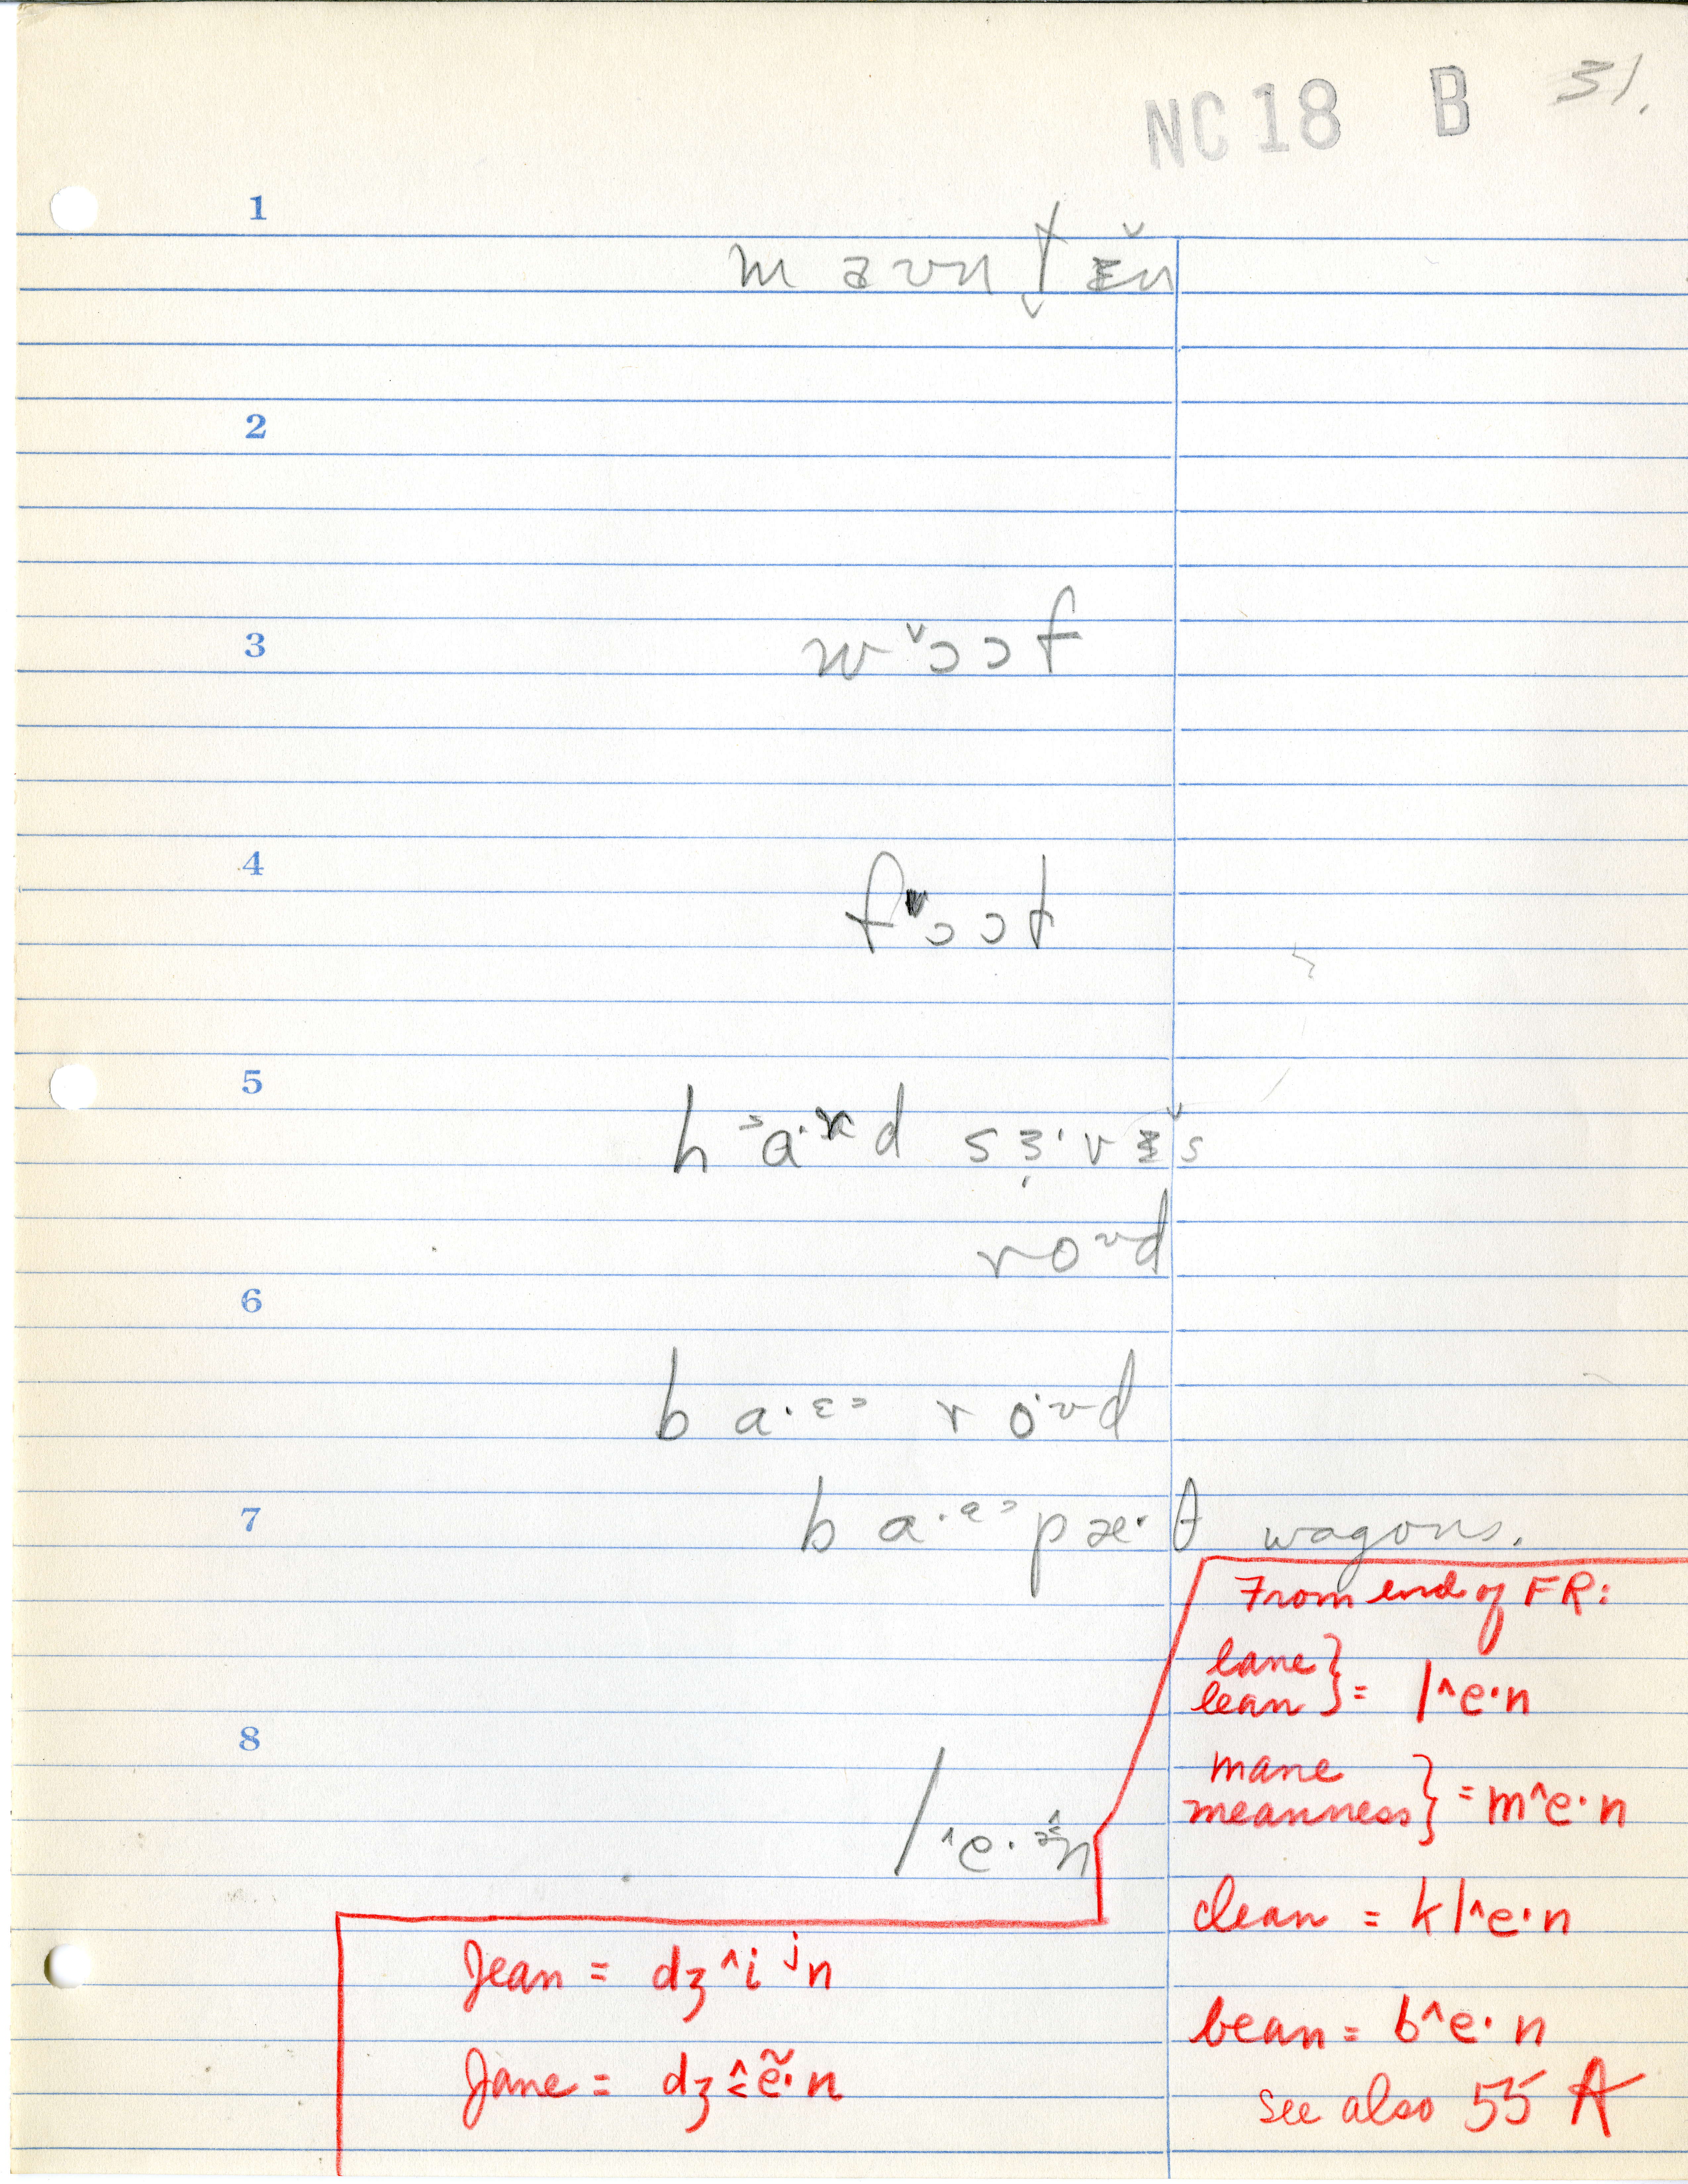 NC 18 B 31.
1
maʊntɪ̌n
2
3
wˇɔɔf
4
fɔɔt
5
h˃a·ɚd sɜ̩·vɪ̌s
roᶷd
6
ba·ᵋ˃ ro·ᶷd
7
ba·ᵊ˃pæ·θ wagons.
From end of FR:
lane
lean } = l^e·n
8
mane
meanness } = m^e·n
l^e·n
clean = kl^e·n
Jean = dʒ^iʲn
bean = b^e·n
Jane = dʒ^˂ẽ·n
see also 55 A